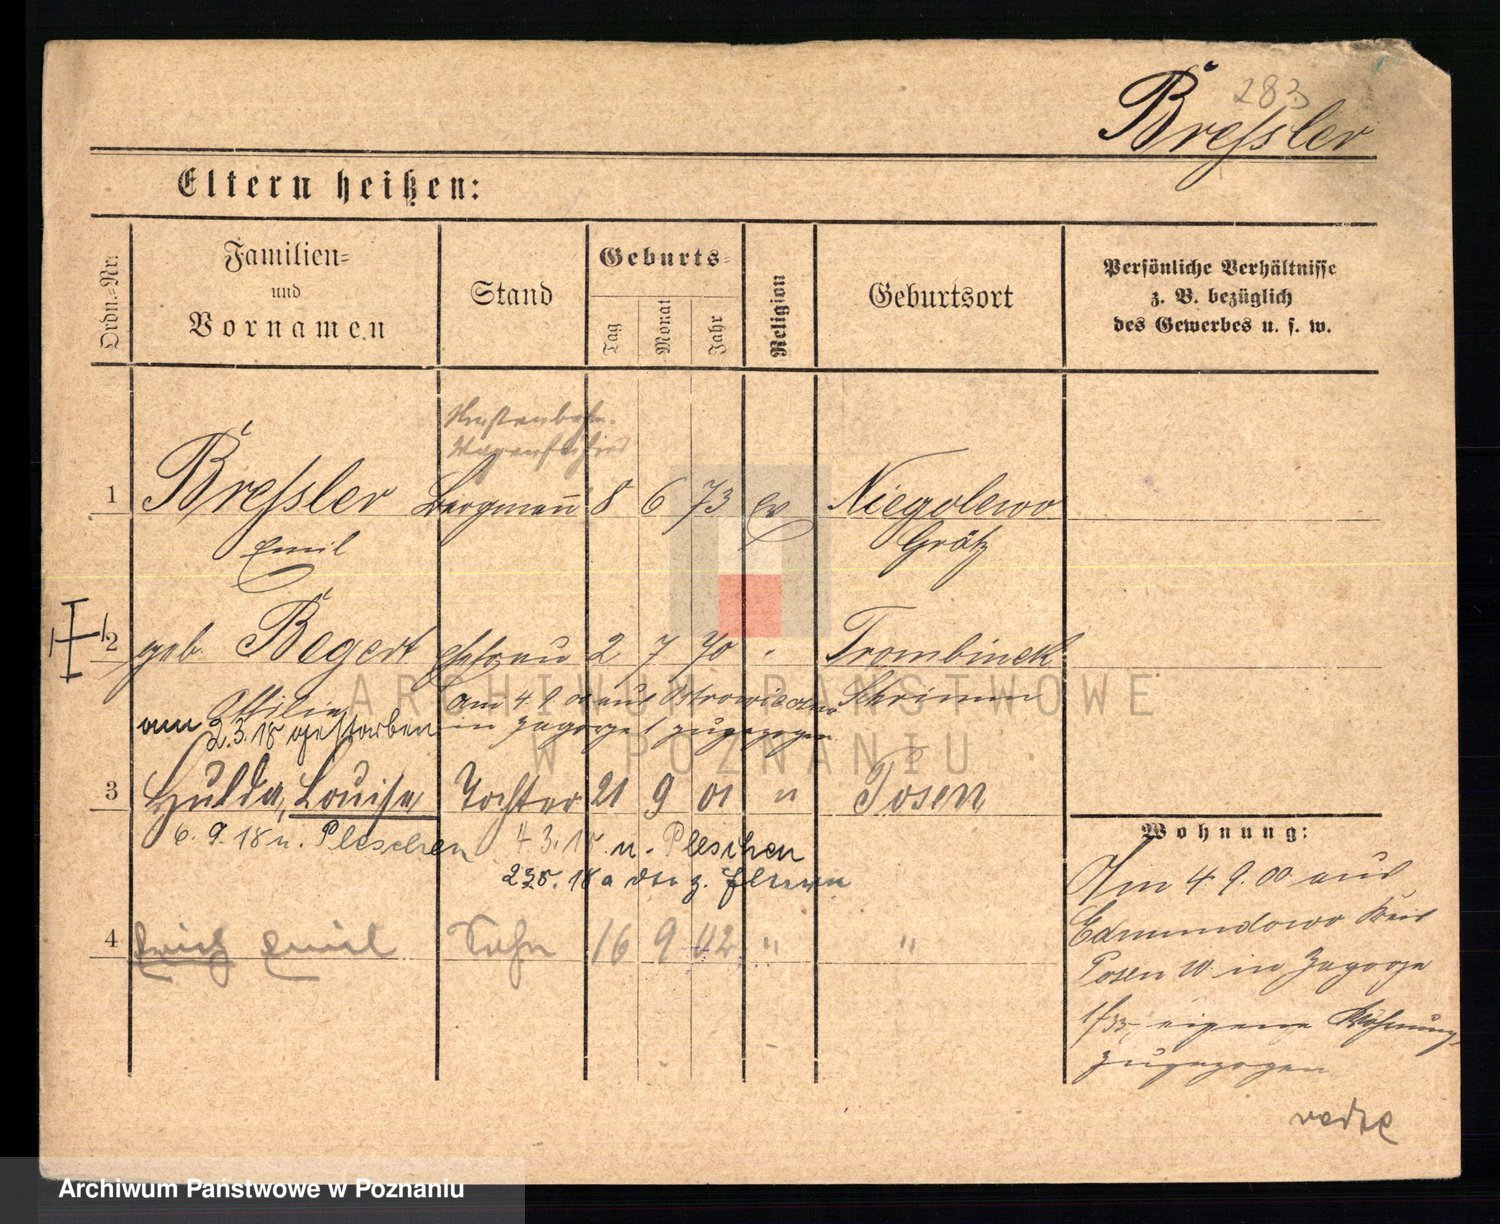 283
Breßler
Eltern heißen:
Ordn.-Nr.
Familien-
und
Vornamen
Stand
Geburts-
Tag
Monat
Jahr
Religion
Geburtsort
Persönliche Verhältnisse
z. B. bezüglich
des Gewerbes u. s. w.
1 Breßler Bergmann 8 6 73 ev Niegolewo
Emil Grätz
2 geb. Begert Ehefrau 2 7 70 " Trombinek
Ottilie am 4 9. 00 aus Schrimm
am 2.3.18 gestorben in Zagorze 1 zugezogen
3 Hulda, Louise Tochter 21 9 01 " Posen
6. 9. 18 n. Pleschen 4 3. 18 n. Pleschen
Eltern
4 Erich Emil Sohn 16 9 02 " "
Wohnung:
Am 4 9. 00 aus
Edmundowo Kreis
Posen W in Zagorze
eigene Wohnung
zugezogen
ARCHIWUM PAŃSTWOWE
W POZNANIU
Archiwum Państwowe w Poznaniu